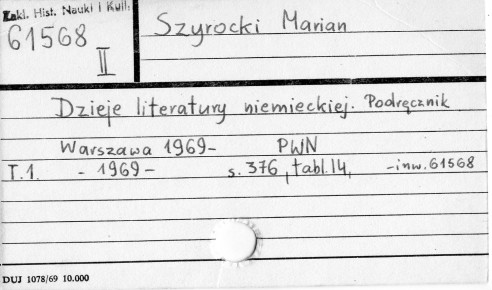 Zakl. Hist. Nauki i Kult.
61568
II
Szyrocki Marian
Dzieje literatury niemieckiej. Podręcznik
Warszawa 1969- PWN
T.1. - 1969 - s. 376, tabl. 14, -inw. 61568
DUJ 1078/69 10.000